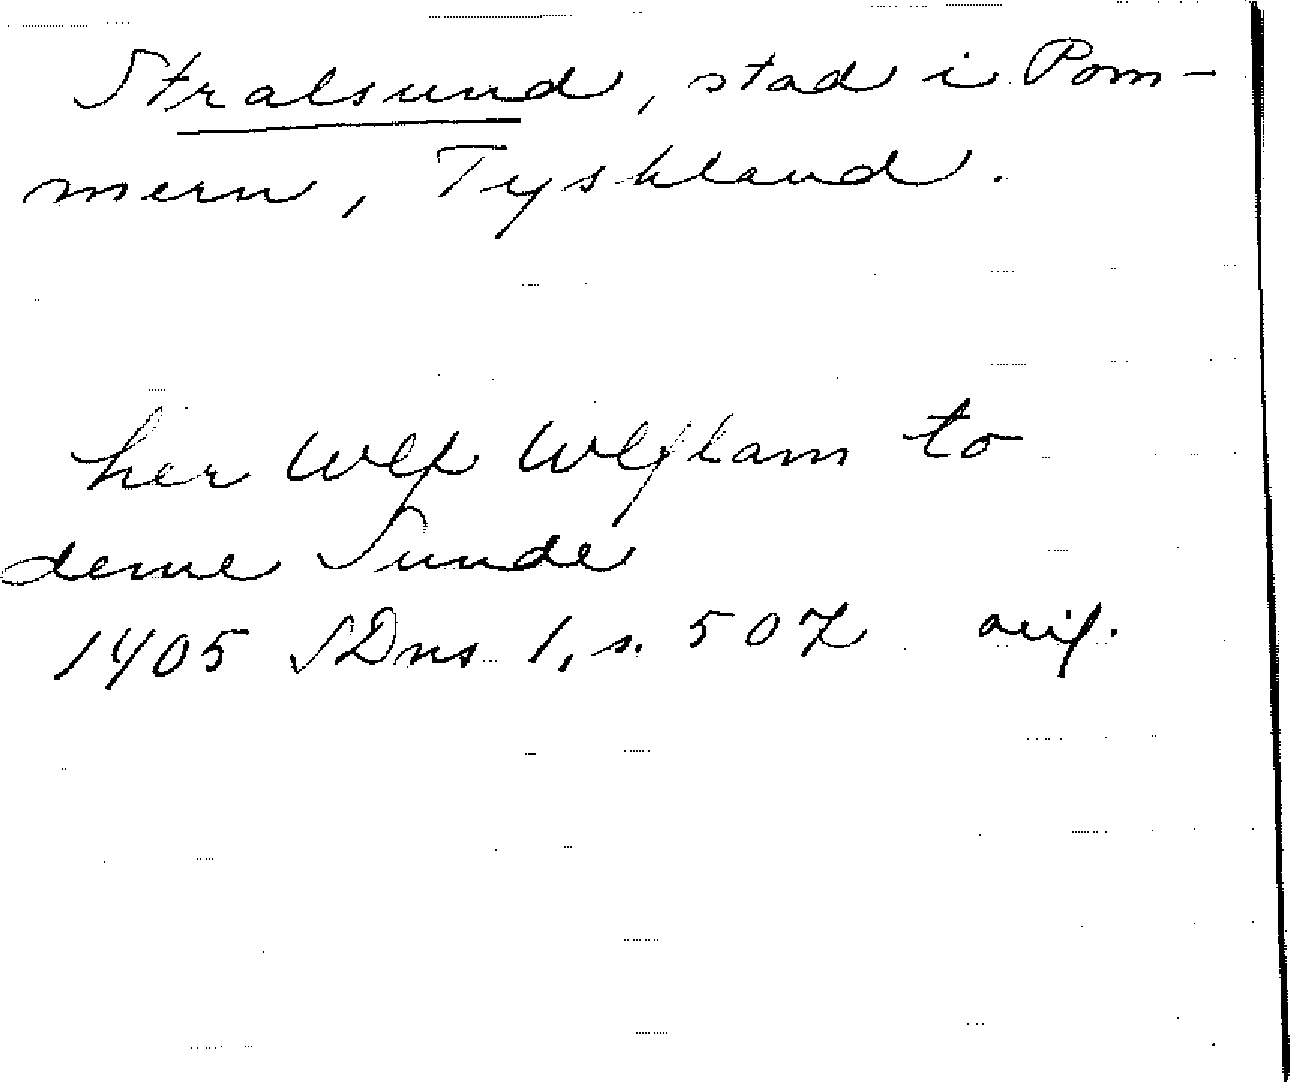 Stralsund, stad i Pom-
mern, Tyskland.
her Wlf Wlflam to
deme Sunde
1405 SDns 1, s. 507 avif.